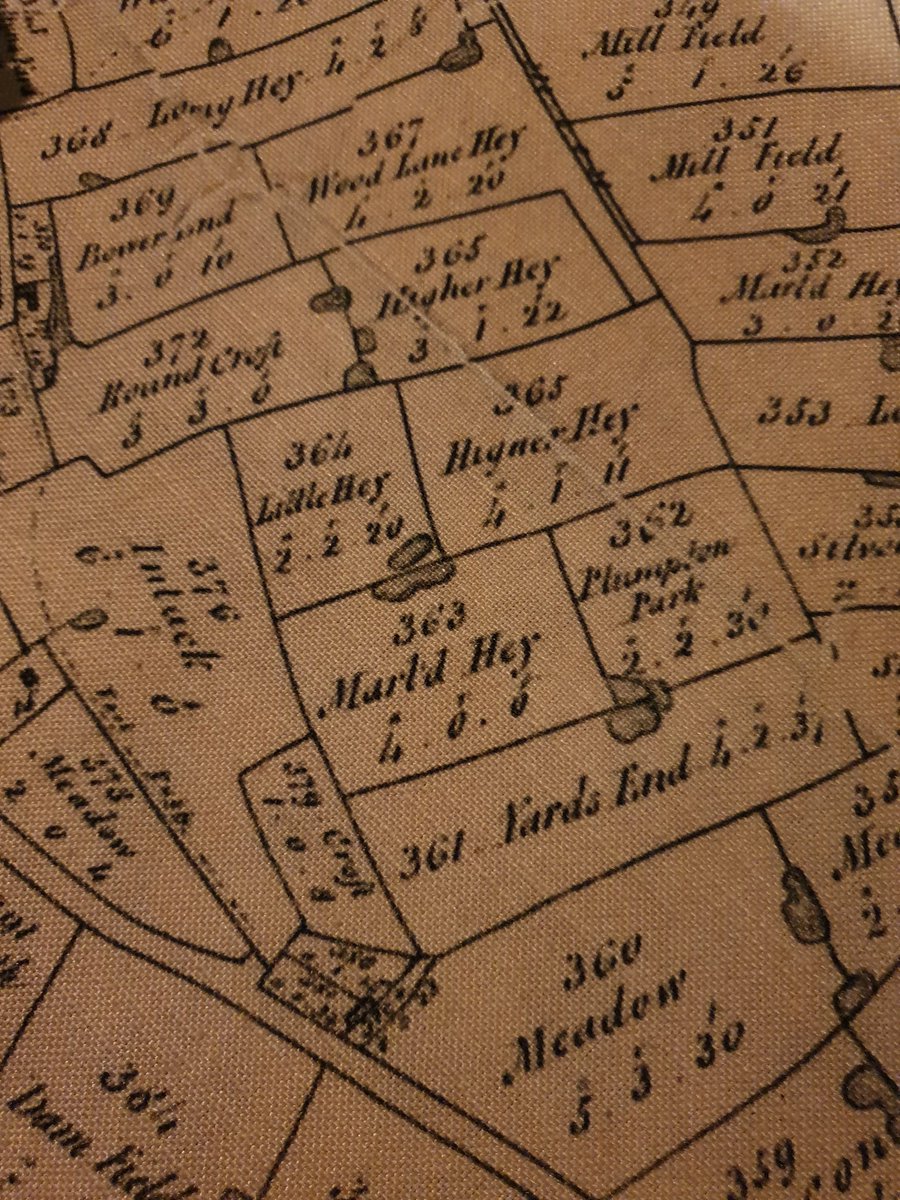 349
Mill Field
3 . 1 . 26
368 Long Hey 4 2 8
351
Mill Field
4 . 0 21
367
Wood Lane Hey
4 . 2 . 20
369
Bower End
3 . 0 10
352
Marld Hey
3 . 0 . 2
365
Higher Hey
3 . 1 . 22
372
Round Croft
3 . 3 . 0
353
365
Higher Hey
4 . 1 . 11
364
Little Hey
2 . 2 20
362
Plumpton
Park
2 . 2 . 30
376
Intack
6 . 1 . 0
363
Marl'd Hey
4 . 0 . 0
361 Yards End 4 . 2 . 31
Foot Path
Meadow
2 0 4
379 Croft
1 . 0 . 8
360
Meadow
5 . 3 . 30
384
Dam Field
359